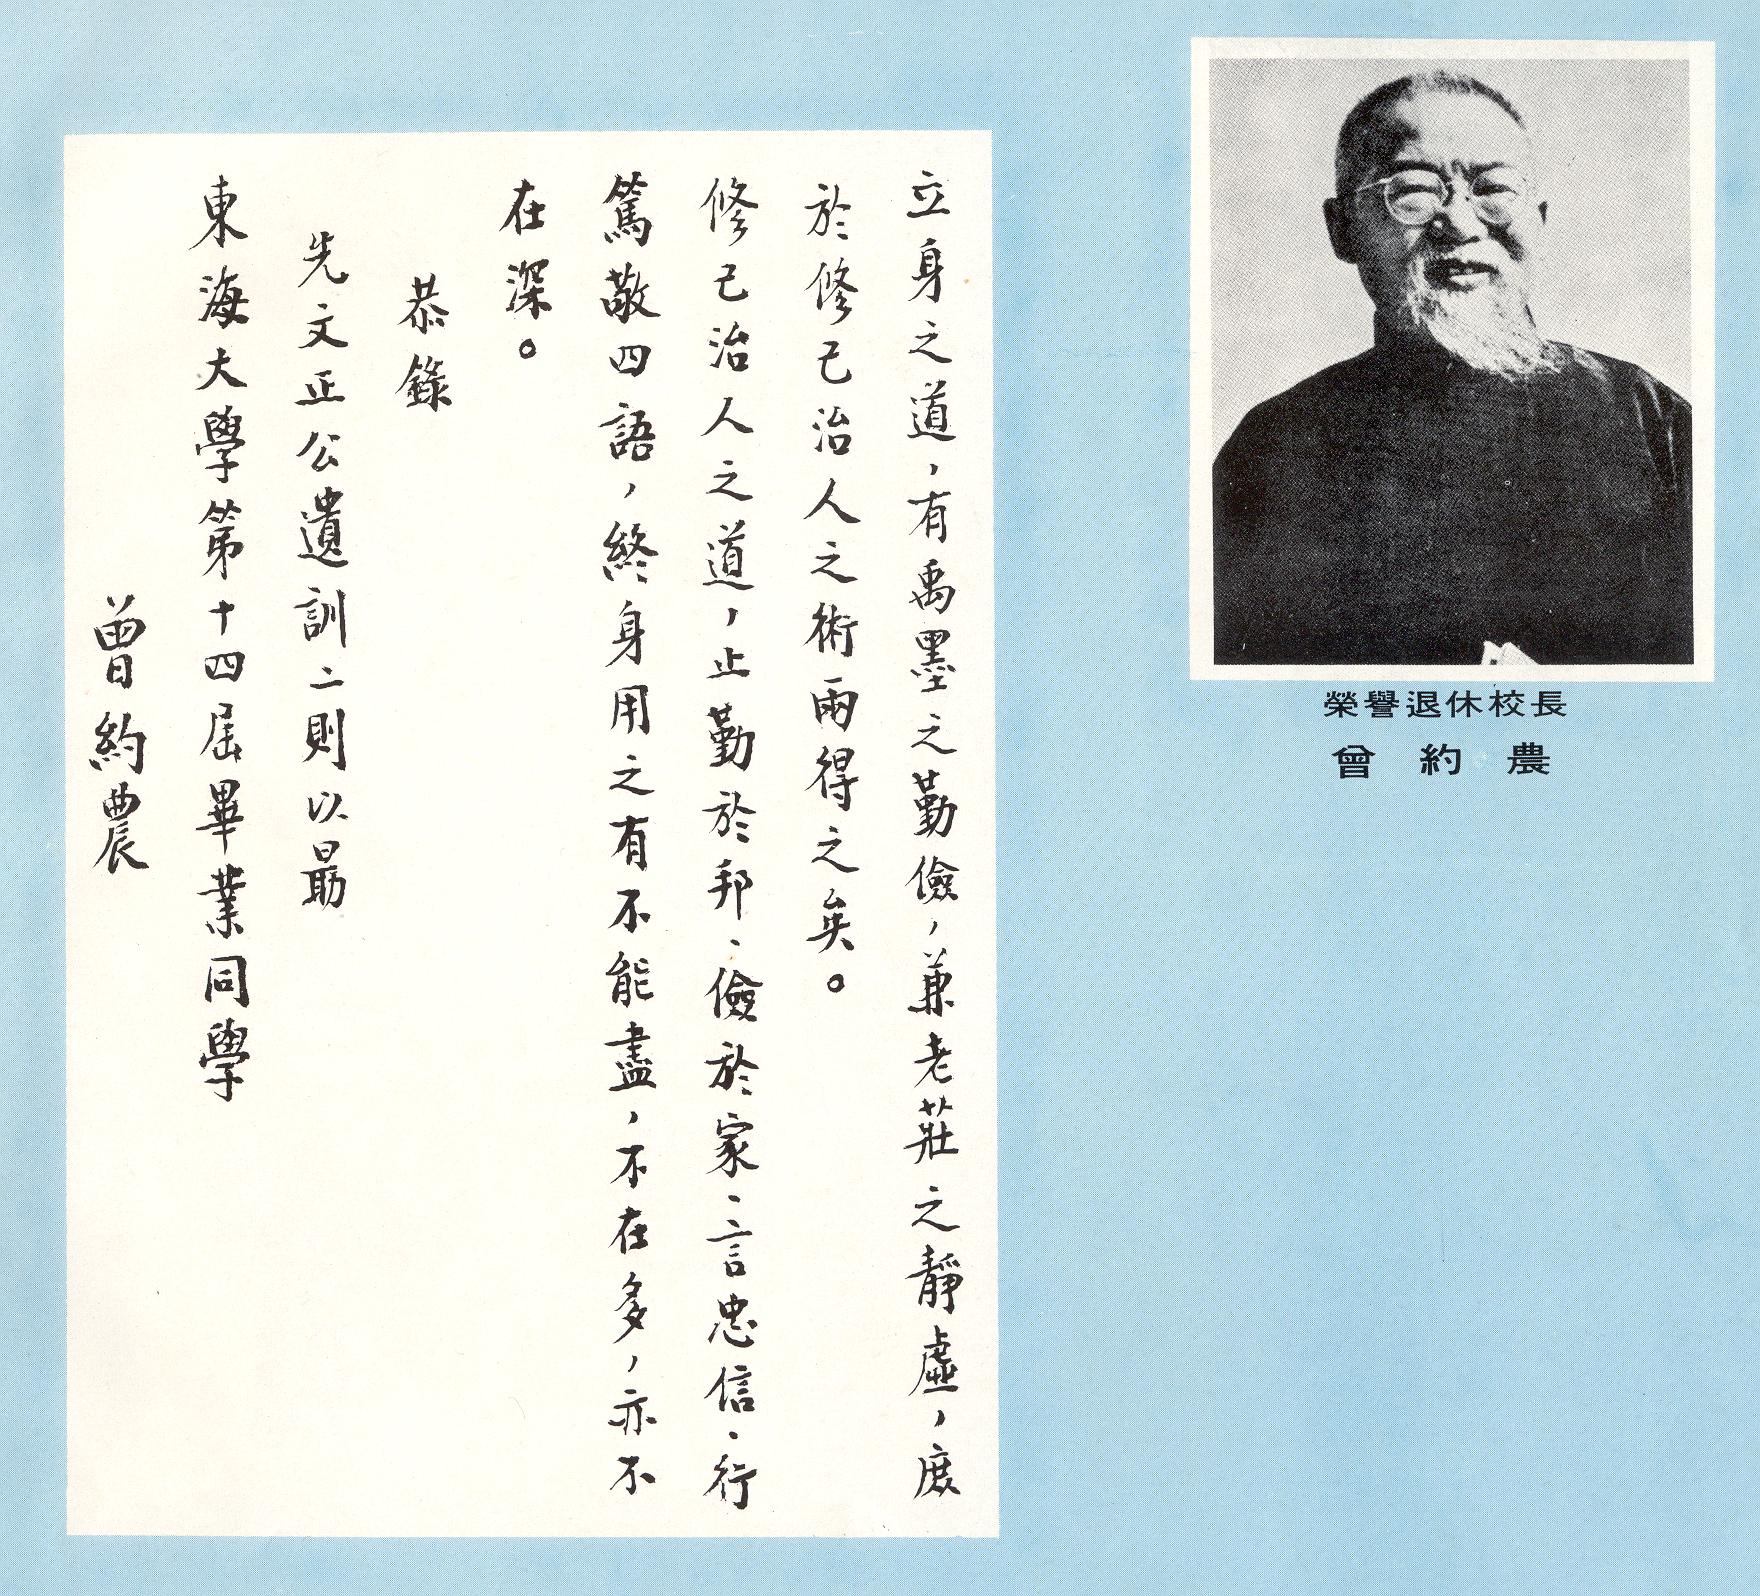 立身之道，有禹墨之勤儉，兼老莊之靜虛，庶
於修己治人之術兩得之矣。
修己治人之道，止勤於邦、儉於家、言忠信、行
篤敬四語，終身用之有不能盡，不在多，亦不
在深。
恭錄
先文正公遺訓二則以勗
東海大學第十四屆畢業同學
曾約農
榮譽退休校長
曾約農